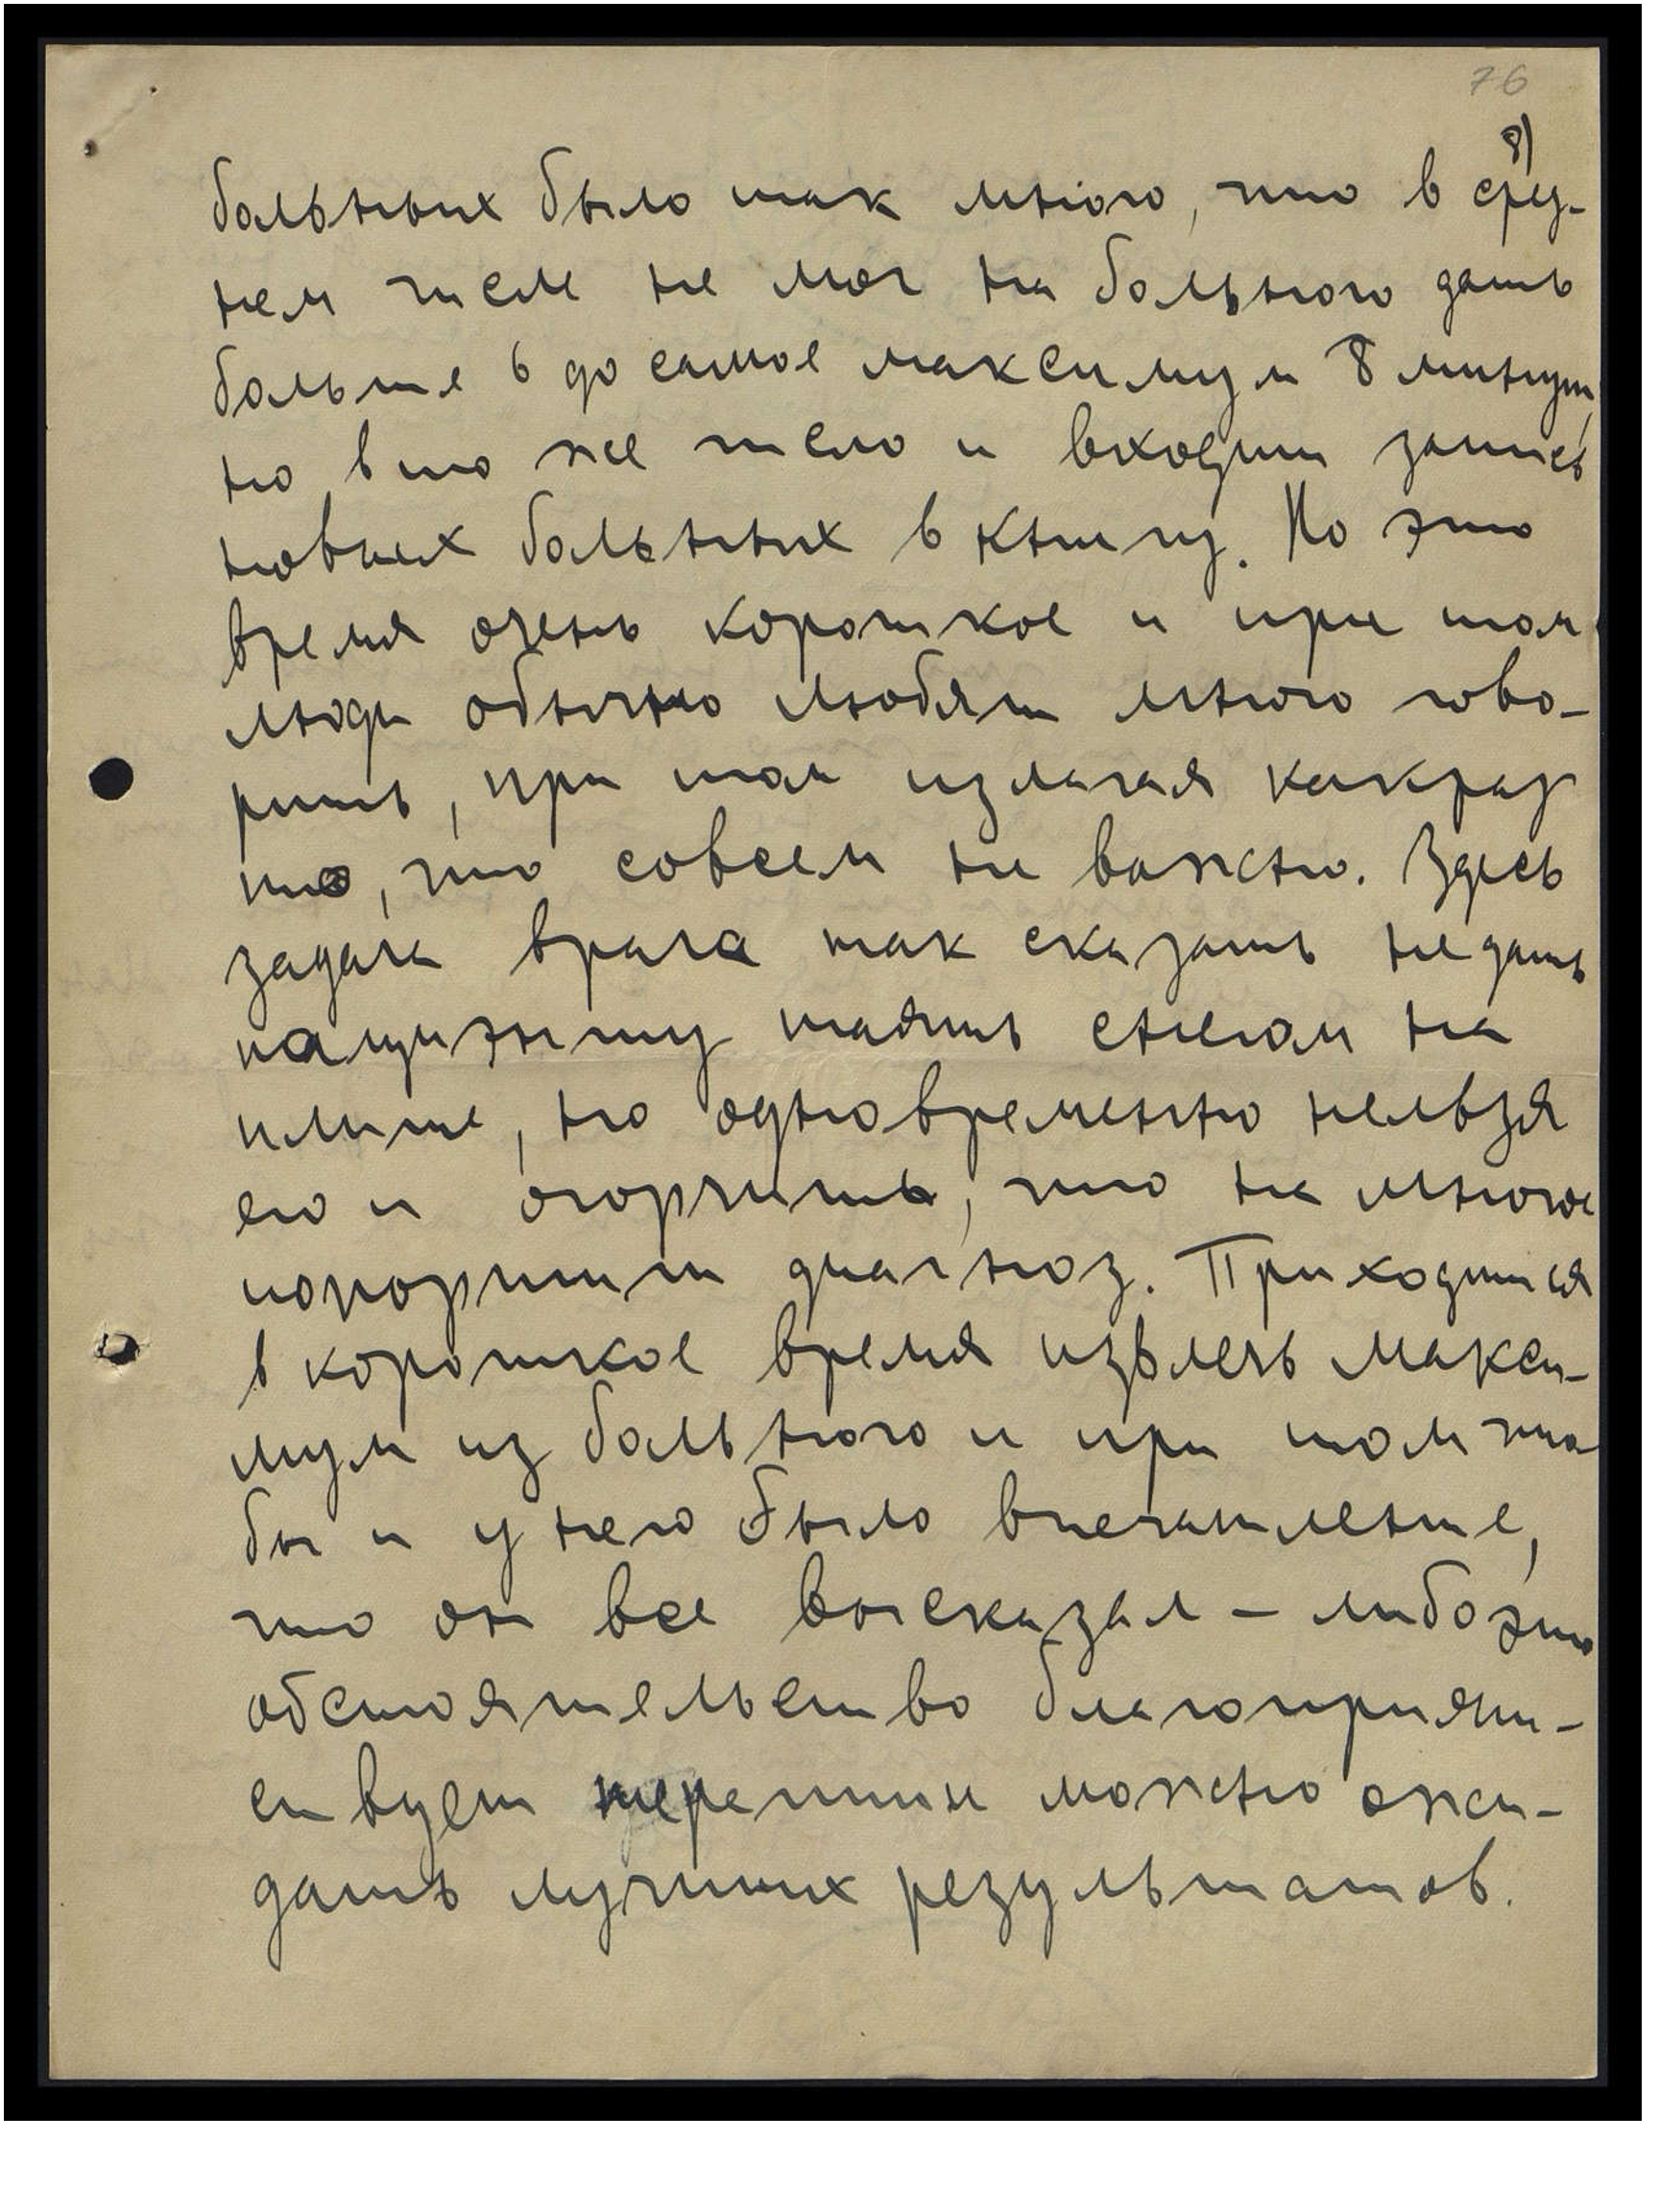 76
8)
больных было так много, что в сред-
нем числе не мог на больного дать
больше 6 до самое максимум 8 минут,
но в то же число и входит запись
новых больных в книгу. Но это
время очень короткое и при том
люди обычно любят много гово-
рить, при том излагая какраз
то, что совсем не важно. Здесь
задача врача так сказать не дать
пациэнту таять снегом на
плите, но одновременно нельзя
его и огорчить, что на многое
испортит диагноз. Приходится
в короткое время извлечь макси-
мум из больного и при том что
бы и у него было впечатление,
что он все высказал – либо это
обстоятельство благоприят-
ствует терапии можно ожи-
дать лучших результатов.